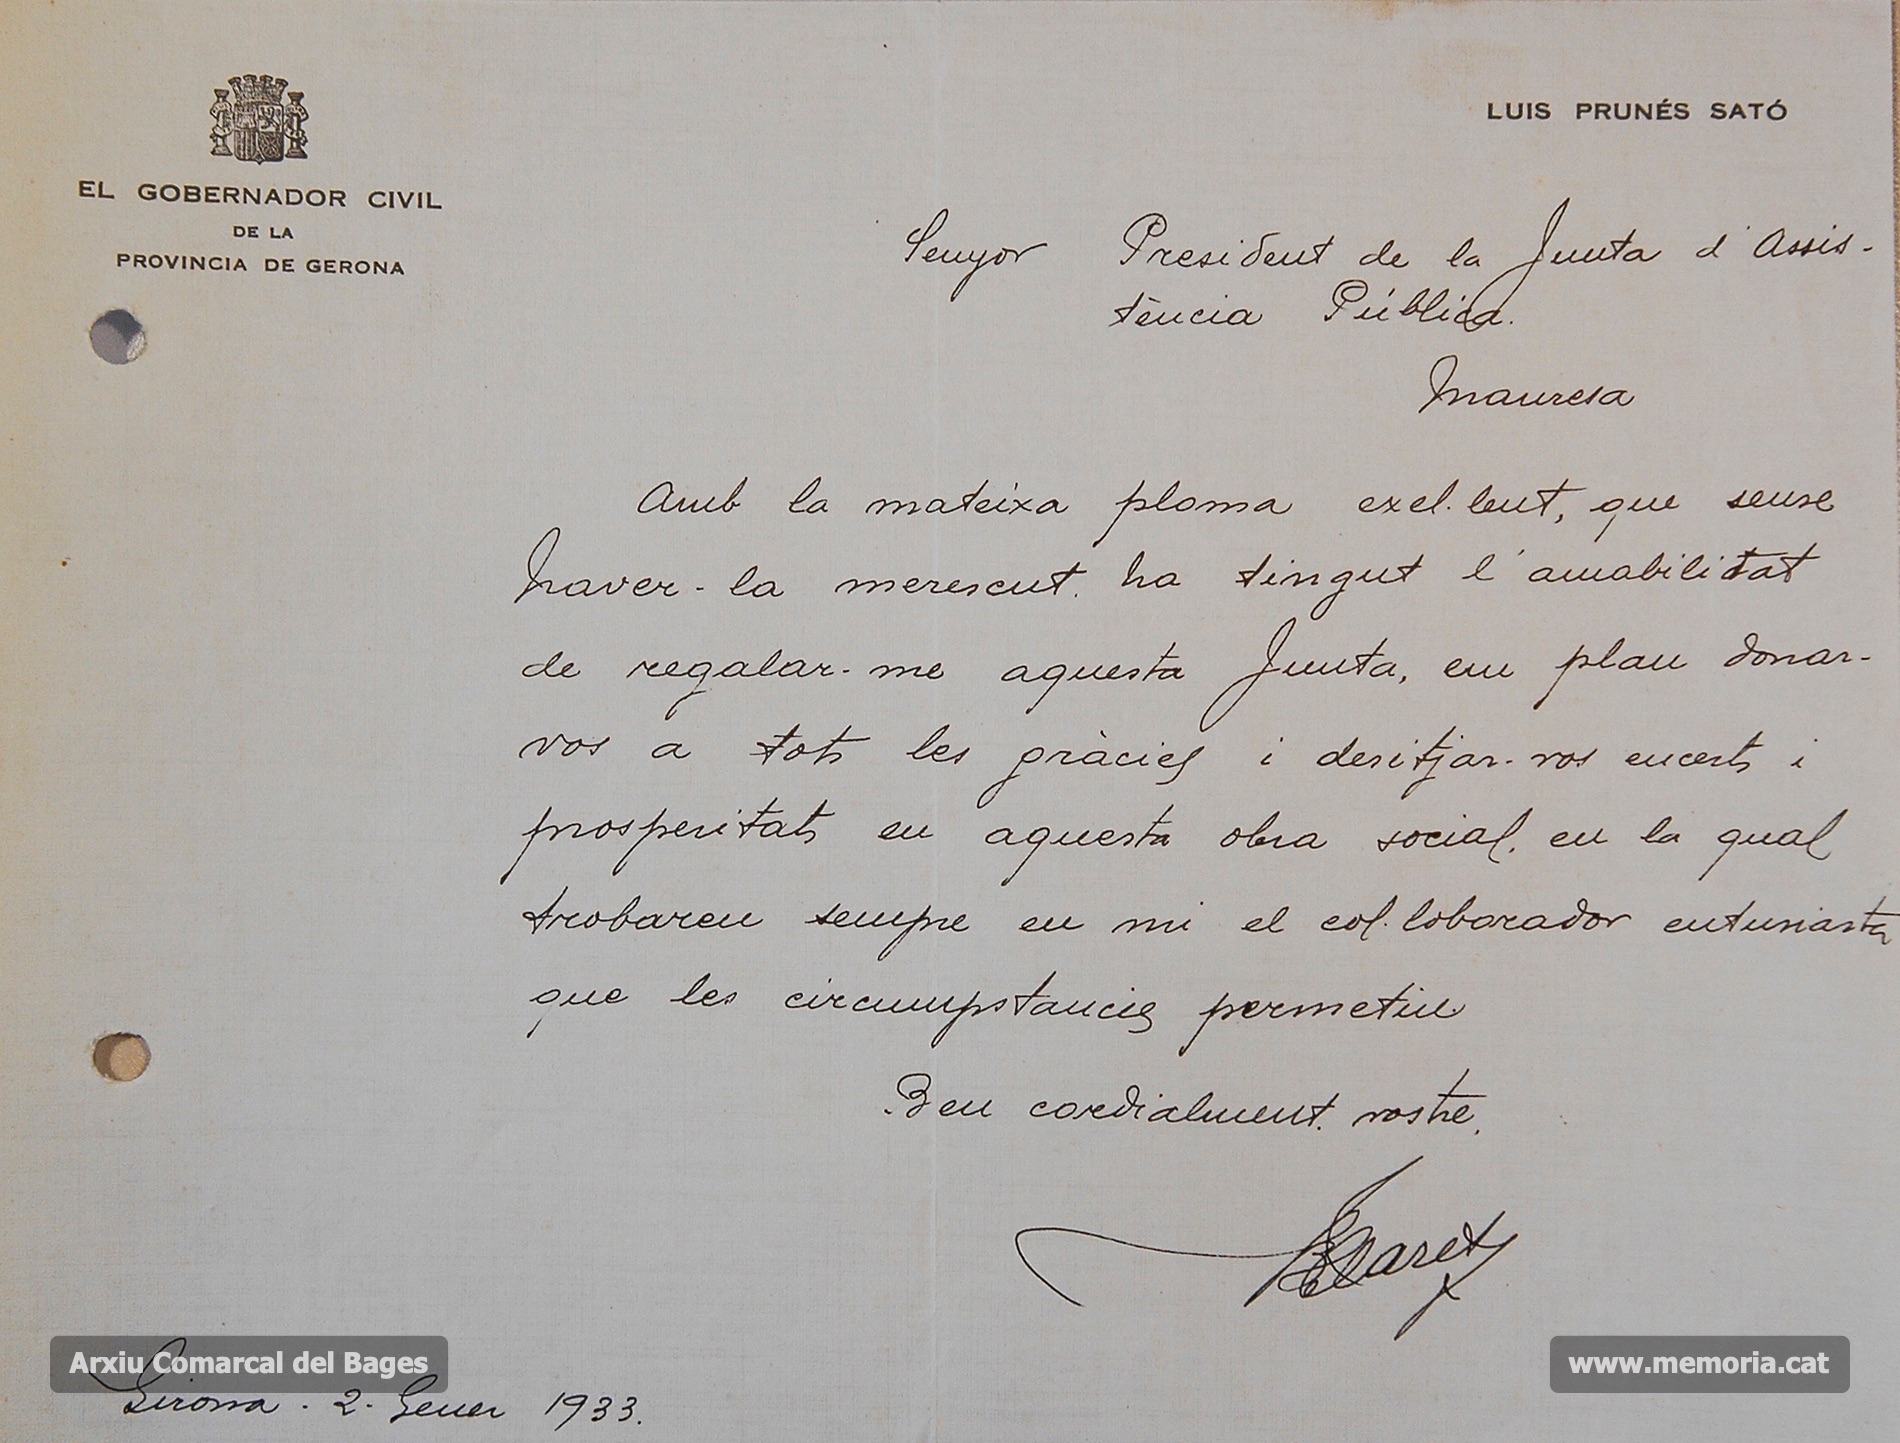 LUIS PRUNÉS SATÓ
EL GOBERNADOR CIVIL
DE LA
PROVINCIA DE GERONA
Senyor President de la Junta d'Assis-
tència Pública.
Manresa
Amb la mateixa ploma exel·lent, que sense
haver-la merescut, ha tingut l'amabilitat
de regalar-me aquesta Junta, em plau donar-
vos a tots les gràcies i desitjar-vos encerts i
prosperitats en aquesta obra social, en la qual
trobareu sempre en mi el col·loborador entusiasta
que les circumpstancies permetin
Ben cordialment vostre,
Girona. 2. Gener 1933.
Arxiu Comarcal del Bages
www.memoria.cat